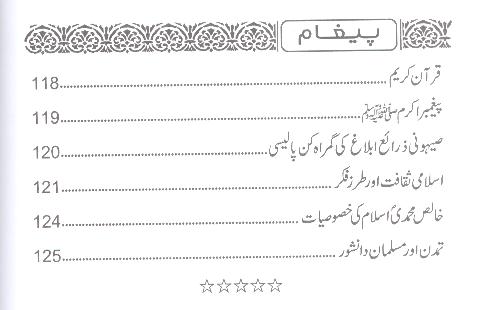 پیغام
قرآن کریم 118
پیغمبر اکرم ﷺ 119
صیہونی ذرائع ابلاغ کی گمراہ کن پالیسی 120
اسلامی ثقافت اور طرز فکر 121
خالص محمدیؐ اسلام کی خصوصیات 124
تمدن اور مسلمان دانشور 125
☆☆☆☆☆